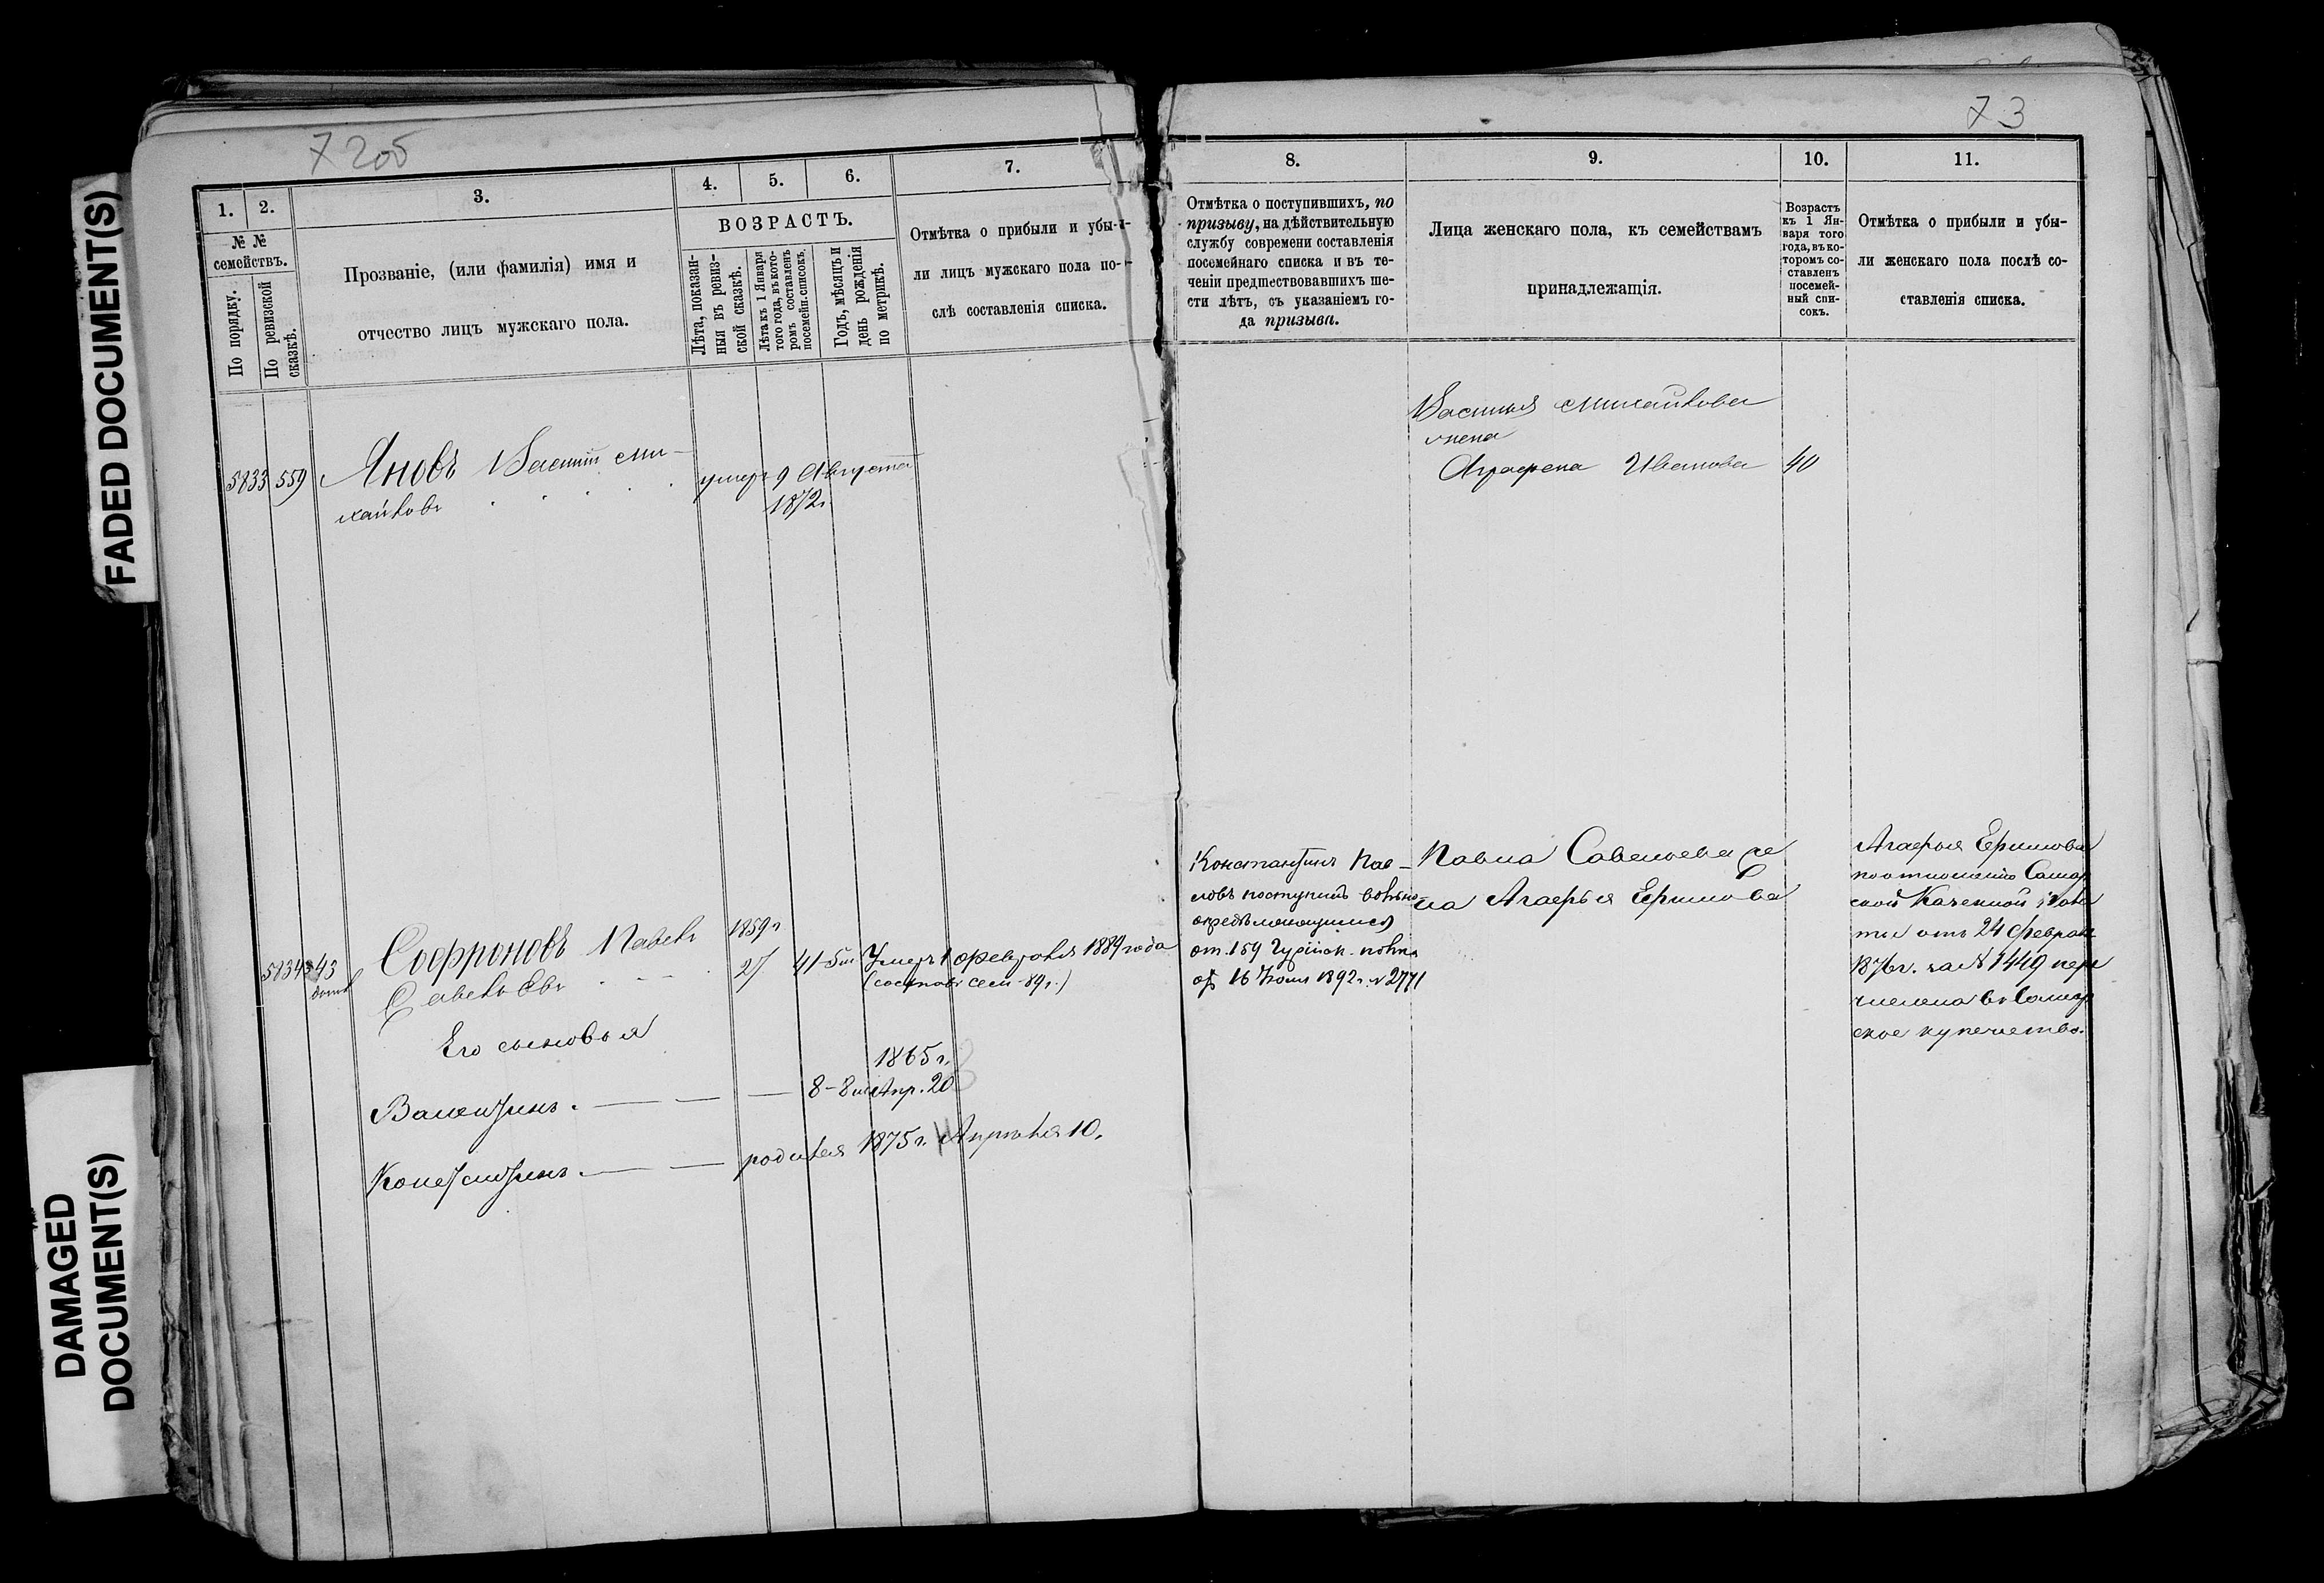 FADED DOCUMENT(S)
DAMAGED
DOCUMENT(S)
7205
1.
2.
3.
4.
5.
6.
7.
№ №
семействъ.
По порядку.
По ревизской
сказкѣ.
Прозваніе, (или фамилія) имя и
отчество лицъ мужскаго пола.
ВОЗРАСТЪ.
Лѣта, показан-
ныя въ ревиз-
ской сказкѣ.
Лѣта къ 1 Января
того года, въ кото-
ромъ составленъ
посемейн. списокъ.
Годъ, мѣсяцъ и
день рожденія
по метрикѣ.
Отмѣтка о прибыли и убы-
ли лицъ мужскаго пола по-
слѣ составленія списка.
5833 559 Яновъ Васили Ми-
хайловъ
умеръ 9 Августа
1872г.
5834 43
Софроновъ Павелъ
Савельевъ
1859г
27
41-5м Умеръ 1 февраля 1889 года
Его сыновья
Валентинъ. — — — 8-8м
1865г.
Апр. 20
Константинъ. — — родился 1875г. Апрѣля 10.
73
8.
9.
10.
11.
Отмѣтка о поступившихъ, по
призыву, на дѣйствительную
службу современи составленія
посемейнаго списка и въ те-
ченіи предшествовавшихъ ше-
сти лѣтъ, съ указаніемъ го-
да призыва.
Лица женскаго пола, къ семействамъ
принадлежащія.
Возрастъ
къ 1 Ян-
варя того
года, въ ко-
торомъ со-
ставленъ
посемей-
ный спи-
сокъ.
Отмѣтка о прибыли и убы-
ли женскаго пола послѣ со-
ставленія списка.
Василья Михайлова
жена
Аграфена Иванова 40
Константинъ Пав-
ловъ поступилъ вольно
опредѣляющимся
от. 159 Гурійск. полка
от 16 Іюля 1892г. № 2771
Павла Савельева же
на Агафья Ершова
Агафья Ершова
по отношенію Самар
ской Казенной Пала
ты отъ 24 Февраля
1876г. за № 1449 пере
числена въ Самар
ское купечество.